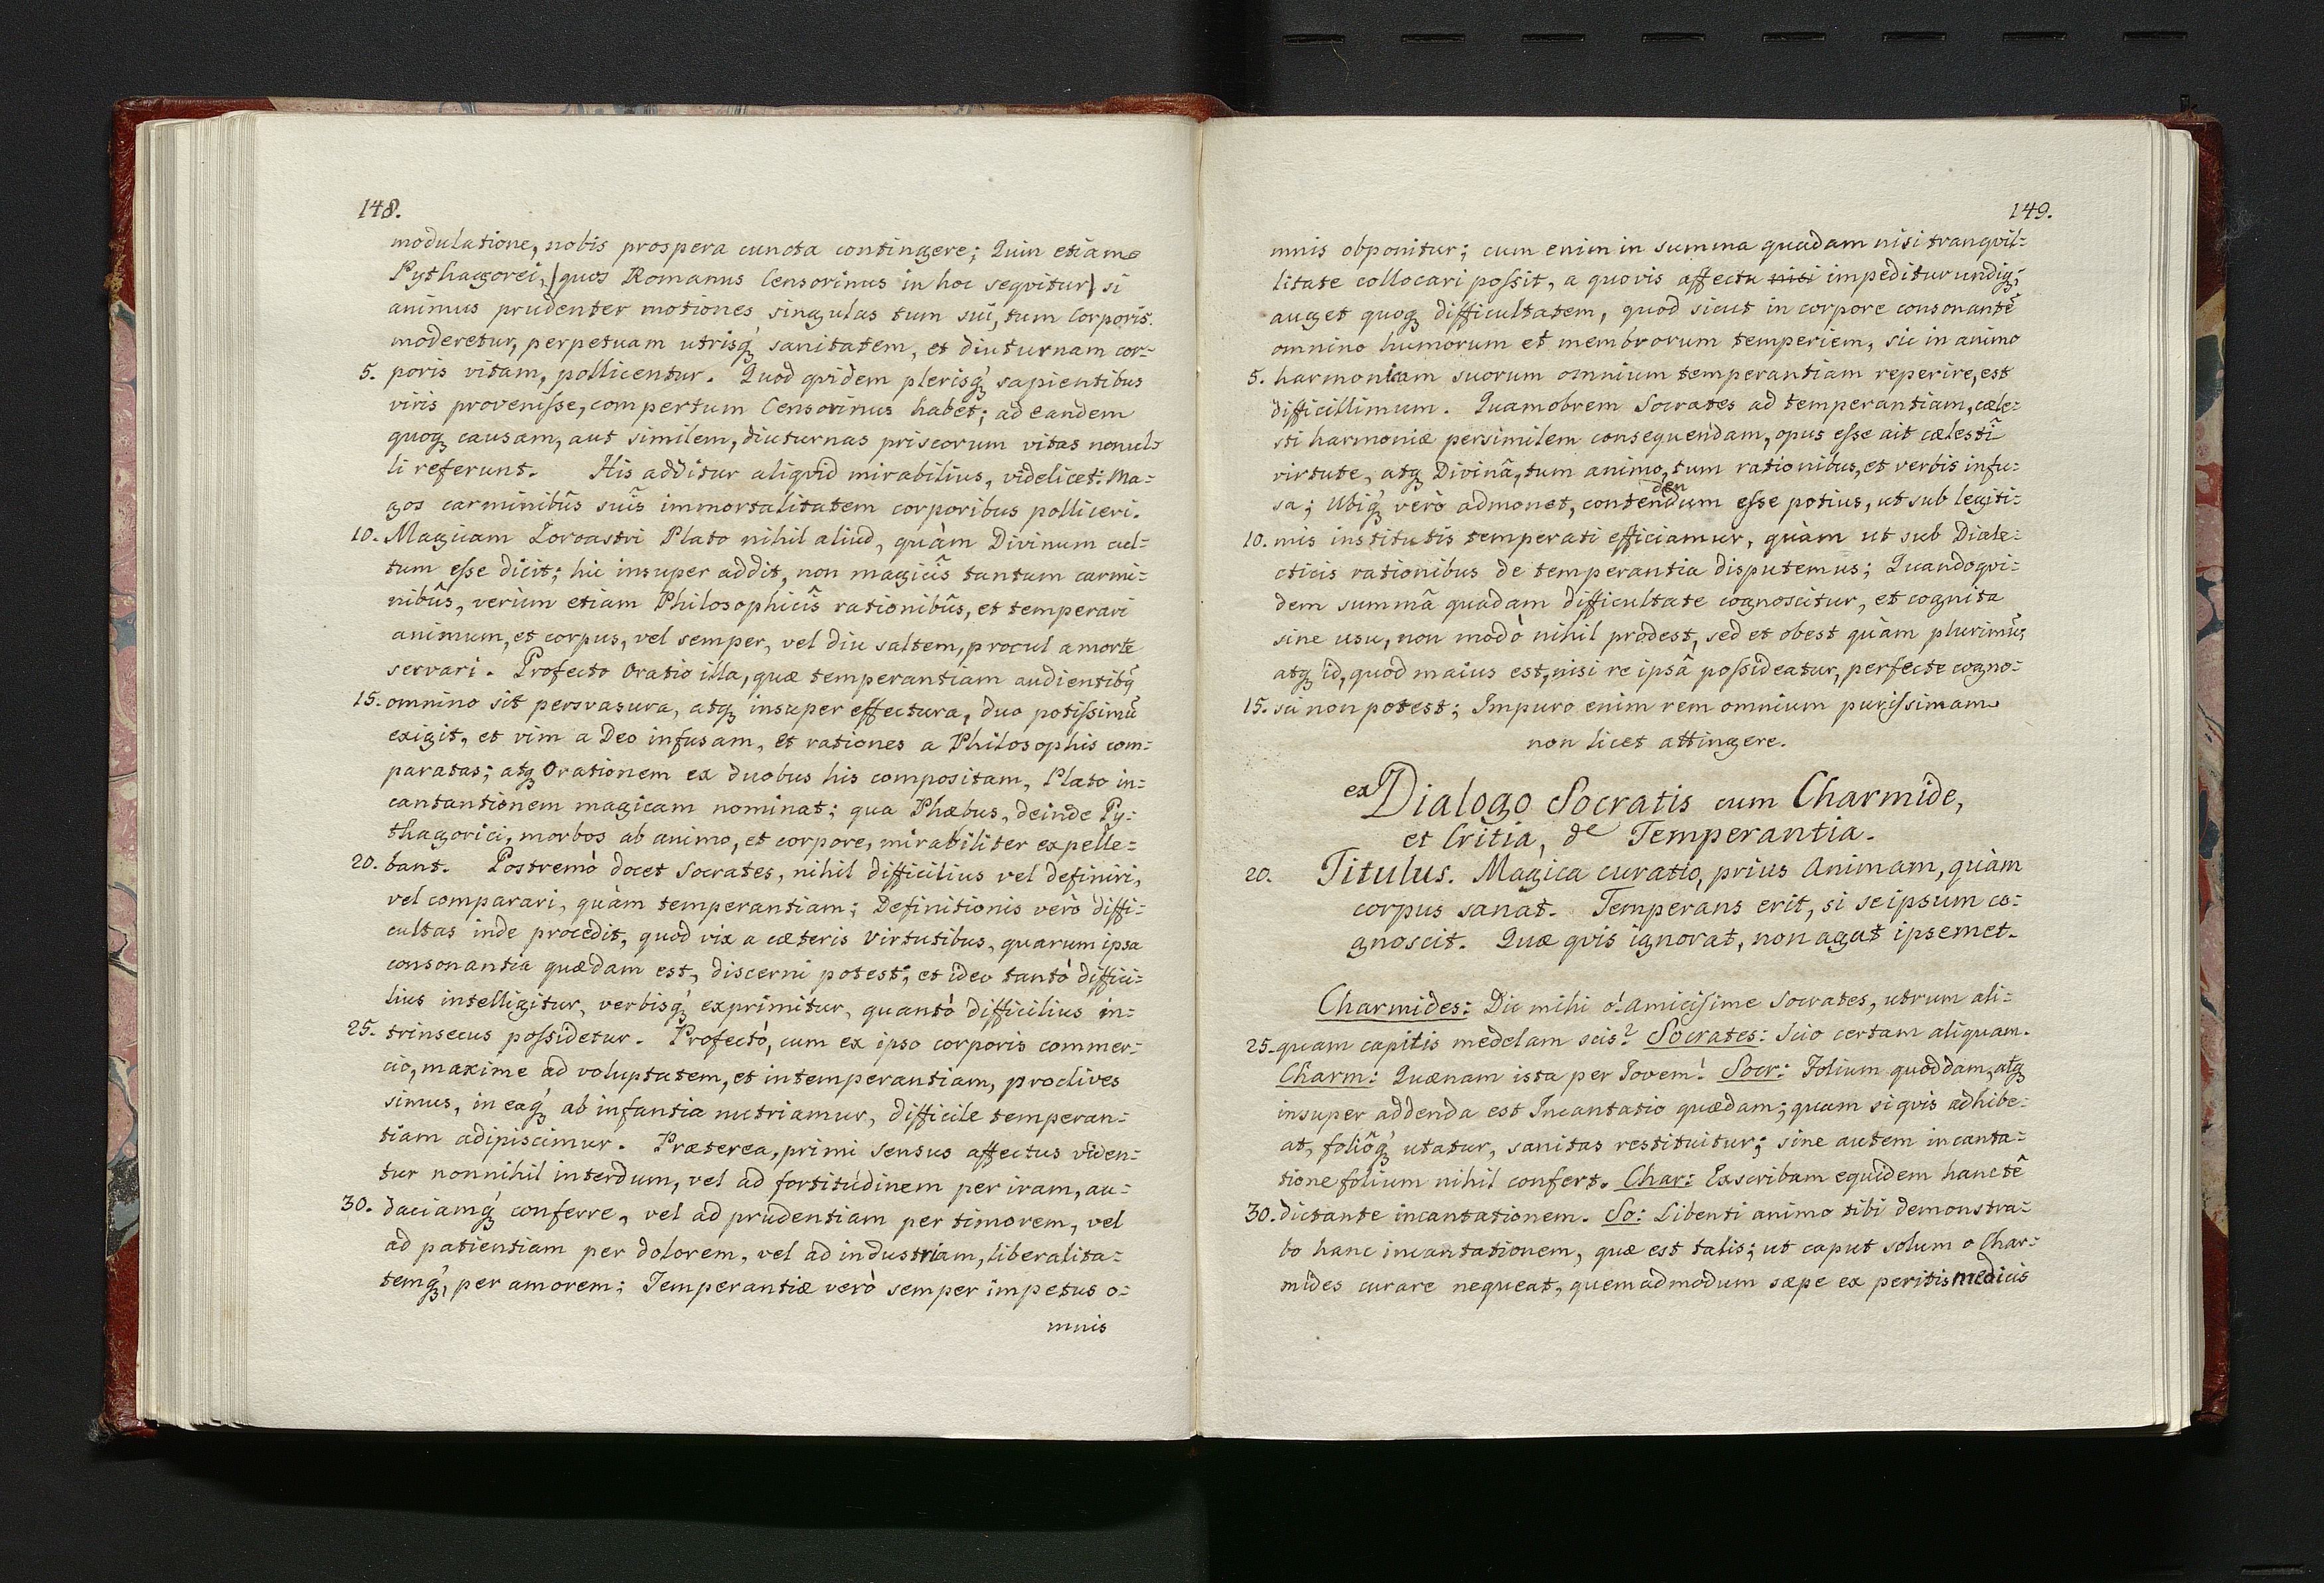 148.
modulatione, nobis prospera cuncta contingere; Quin etiam
Pythagorei, /quos Romanus Censorinus in hoc seqvitur/ si
animus prudenter motiones singulas tum sui, tum Corporis.
moderetur, perpetuam utrisq́ʒ sanitatem, et diuturnam cor:
5. poris vitam, pollicentur. Quod qvidem plerisq́ʒ sapientibus
viris proveniſse, compertum Censorinus habet; ad eandem
quoqʒ causam, aut similem, diuturnas priscorum vitas nonul:
li referunt. His additur aliqvid mirabilius, videlicet: Ma:
gos carminibûs suîs immortalitatem corporibus polliceri.
10. Magicam Zoroastri Plato nihil aliud, quàm Divinum cul:
tum eſse dicit; hic insuper addit, non magicîs tantum carmi:
nibûs, verùm etiam Philosophicîs rationibûs, et temperari
animum, et corpus, vel semper, vel diu saltem, procul a morte
servari. Profecto Oratio illa, quæ temperantiam audientibq̃
15. omnino sit persvasura, atqʒ insuper effectura, duo potiſsimũ
exigit, et vim a Deo infusam, et rationes a Philosophis com:
paratas; atqʒ Orationem ex duobus his compositam, Plato in:
cantantionem magicam nominat; qua Phæbus, deinde Py:
thagorici, morbos ab animo, et corpore, mirabiliter expelle:
20. bant. Postremò docet Socrates, nihil difficilius vel definiri,
vel comparari, quàm temperantiam; Definitionis verò diffi:
cultas inde procedit, quod vix a cæteris Virtutibus, quarum ipsa
consonantia quædam est, discerni potest; et ideo tantò diffici:
lius intelligitur, verbisq́ʒ exprimitur, quantò difficilius in:
25. trinsecus poſsidetur. Profectò, cum ex ipso corporis commer:
cio, maxime ad voluptatem, et intemperantiam, proclives
simus, in eaq́ʒ ab infantia nutriamur, difficile temperan:
tiam adipiscimur. Præterea, primi sensus affectus viden:
tur nonnihil interdum, vel ad fortitúdinem per iram, au:
30. daciamq́ʒ conferre, vel ad prudentiam per timorem, vel
ad patientiam per dolorem, vel ad industriam, liberalita:
temq́ʒ, per amorem; Temperantiæ verò semper impetus o:
mnis
149.
mnis obponitur; cum enim in summa quadam nisi tranqvil:
litate collocari poſsit, a quovis affectu nisi impeditur undiqʒ;
auget quoqʒ difficultatem, quod sicut in corpore consonantẽ
omnino humorum et membrorum temperiem, sic in animo
5. harmoniam suorum omnium temperantiam reperire, est
difficillimum. Quamobrem Socrates ad temperantiam, cæle:
sti harmoniæ persimilem consequendam, opus eſse ait cælestî
virtute, atqʒ Divinâ, tum animo, tum rationibus, et verbis infu:
den
sa; Ubiq́ʒ verò admonet, contendum eſse potius, ut sub legiti:
10. mis institutis temperati efficiamur, quàm ut sub Diale:
cticis rationibus de temperantia disputemus; Quandoqvi:
dem summâ quadam difficultate cognoscitur, et cognita
sine usu, non modò nihil prodest, sed et obest quàm plurimũ;
atqʒ id, quod maius est, nisi re ipsâ poſsideatur, perfecte cogno:
15. sci non potest; Impuro enim rem omnium puriſsimam
non licet attingere.
ex Dialogo Socratis cum Charmide,
et Critia, de Temperantia.
20. Titulus. Magica curatio, prius Animam, quàm
corpus sanat. Temperans erit, si se ipsum co:
gnoscit. Quæ qvis ignorat, non agat ipsemet.
Charmides: Dic mihi o! amiciſsime Socrates, utrum ali:
25. quam capitis medelam scis? Socrates: Scio certam aliquam.
Charm: Quænam ista per Jovem! Socr: Folium quoddam, atqʒ
insuper addenda est Incantatio quædam; quam si qvis adhibe:
at, foliôq́ʒ utatur, sanitas restituitur; sine autem incanta:
tione folium nihil confert. Char: Exscribam equidem hanc tê
30. dictante incantationem. So: Libenti animo tibi demonstra:
bo hanc incantationem, quæ est talis; ut caput solum o Char:
mides curare nequeat, quemadmodum sæpe ex peritis medicis